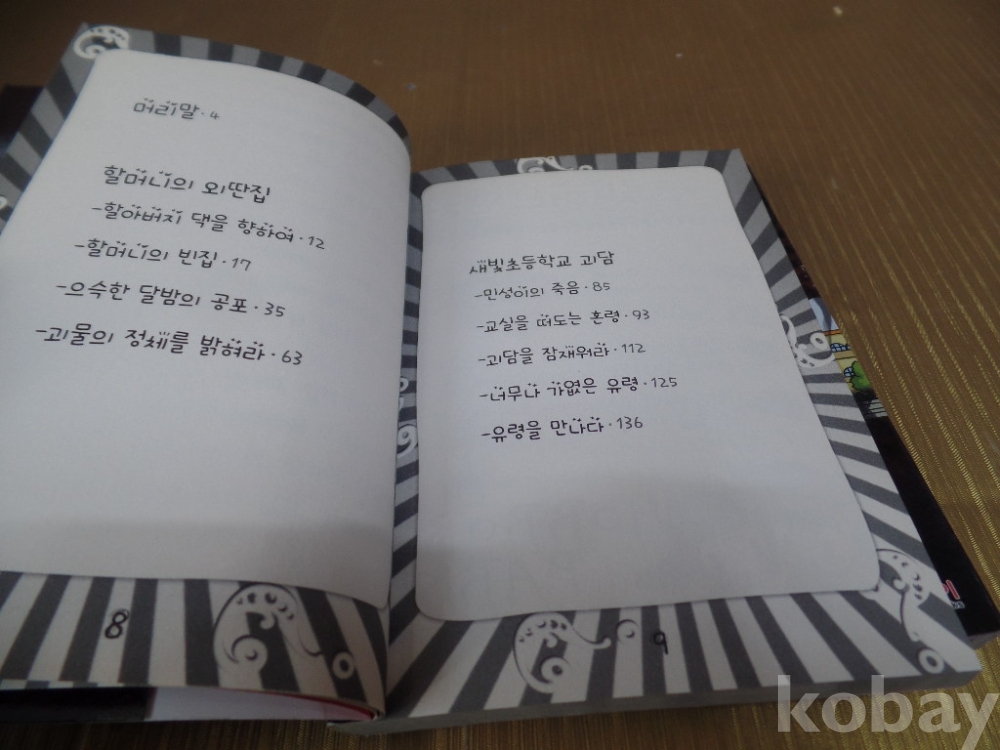 머리말·4
할머니의 외딴집
-할아버지 댁을 향하여·12
-할머니의 빈집·17
-으슥한 달밤의 공포·35
-괴물의 정체를 밝혀라·63
8
새빛초등학교 괴담
-민성이의 죽음·85
-교실을 떠도는 혼령·93
-괴담을 잠재워라·112
-너무나 가엾은 유령·125
-유령을 만나다·136
9
kobay